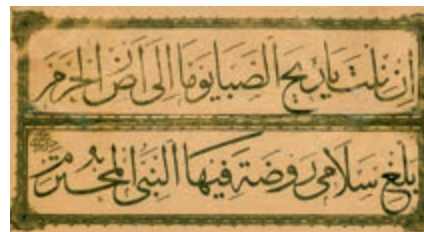 اِنْ نِلْتَ يَا رِيحَ الصَّبَا يَوْمًا اِلَى اَرْضِ الْحَرَمِ
بَلِّغْ سَلَامِى رَوْضَةً فِيهَا النَّبِىُّ الْمُحْتَرَمُ